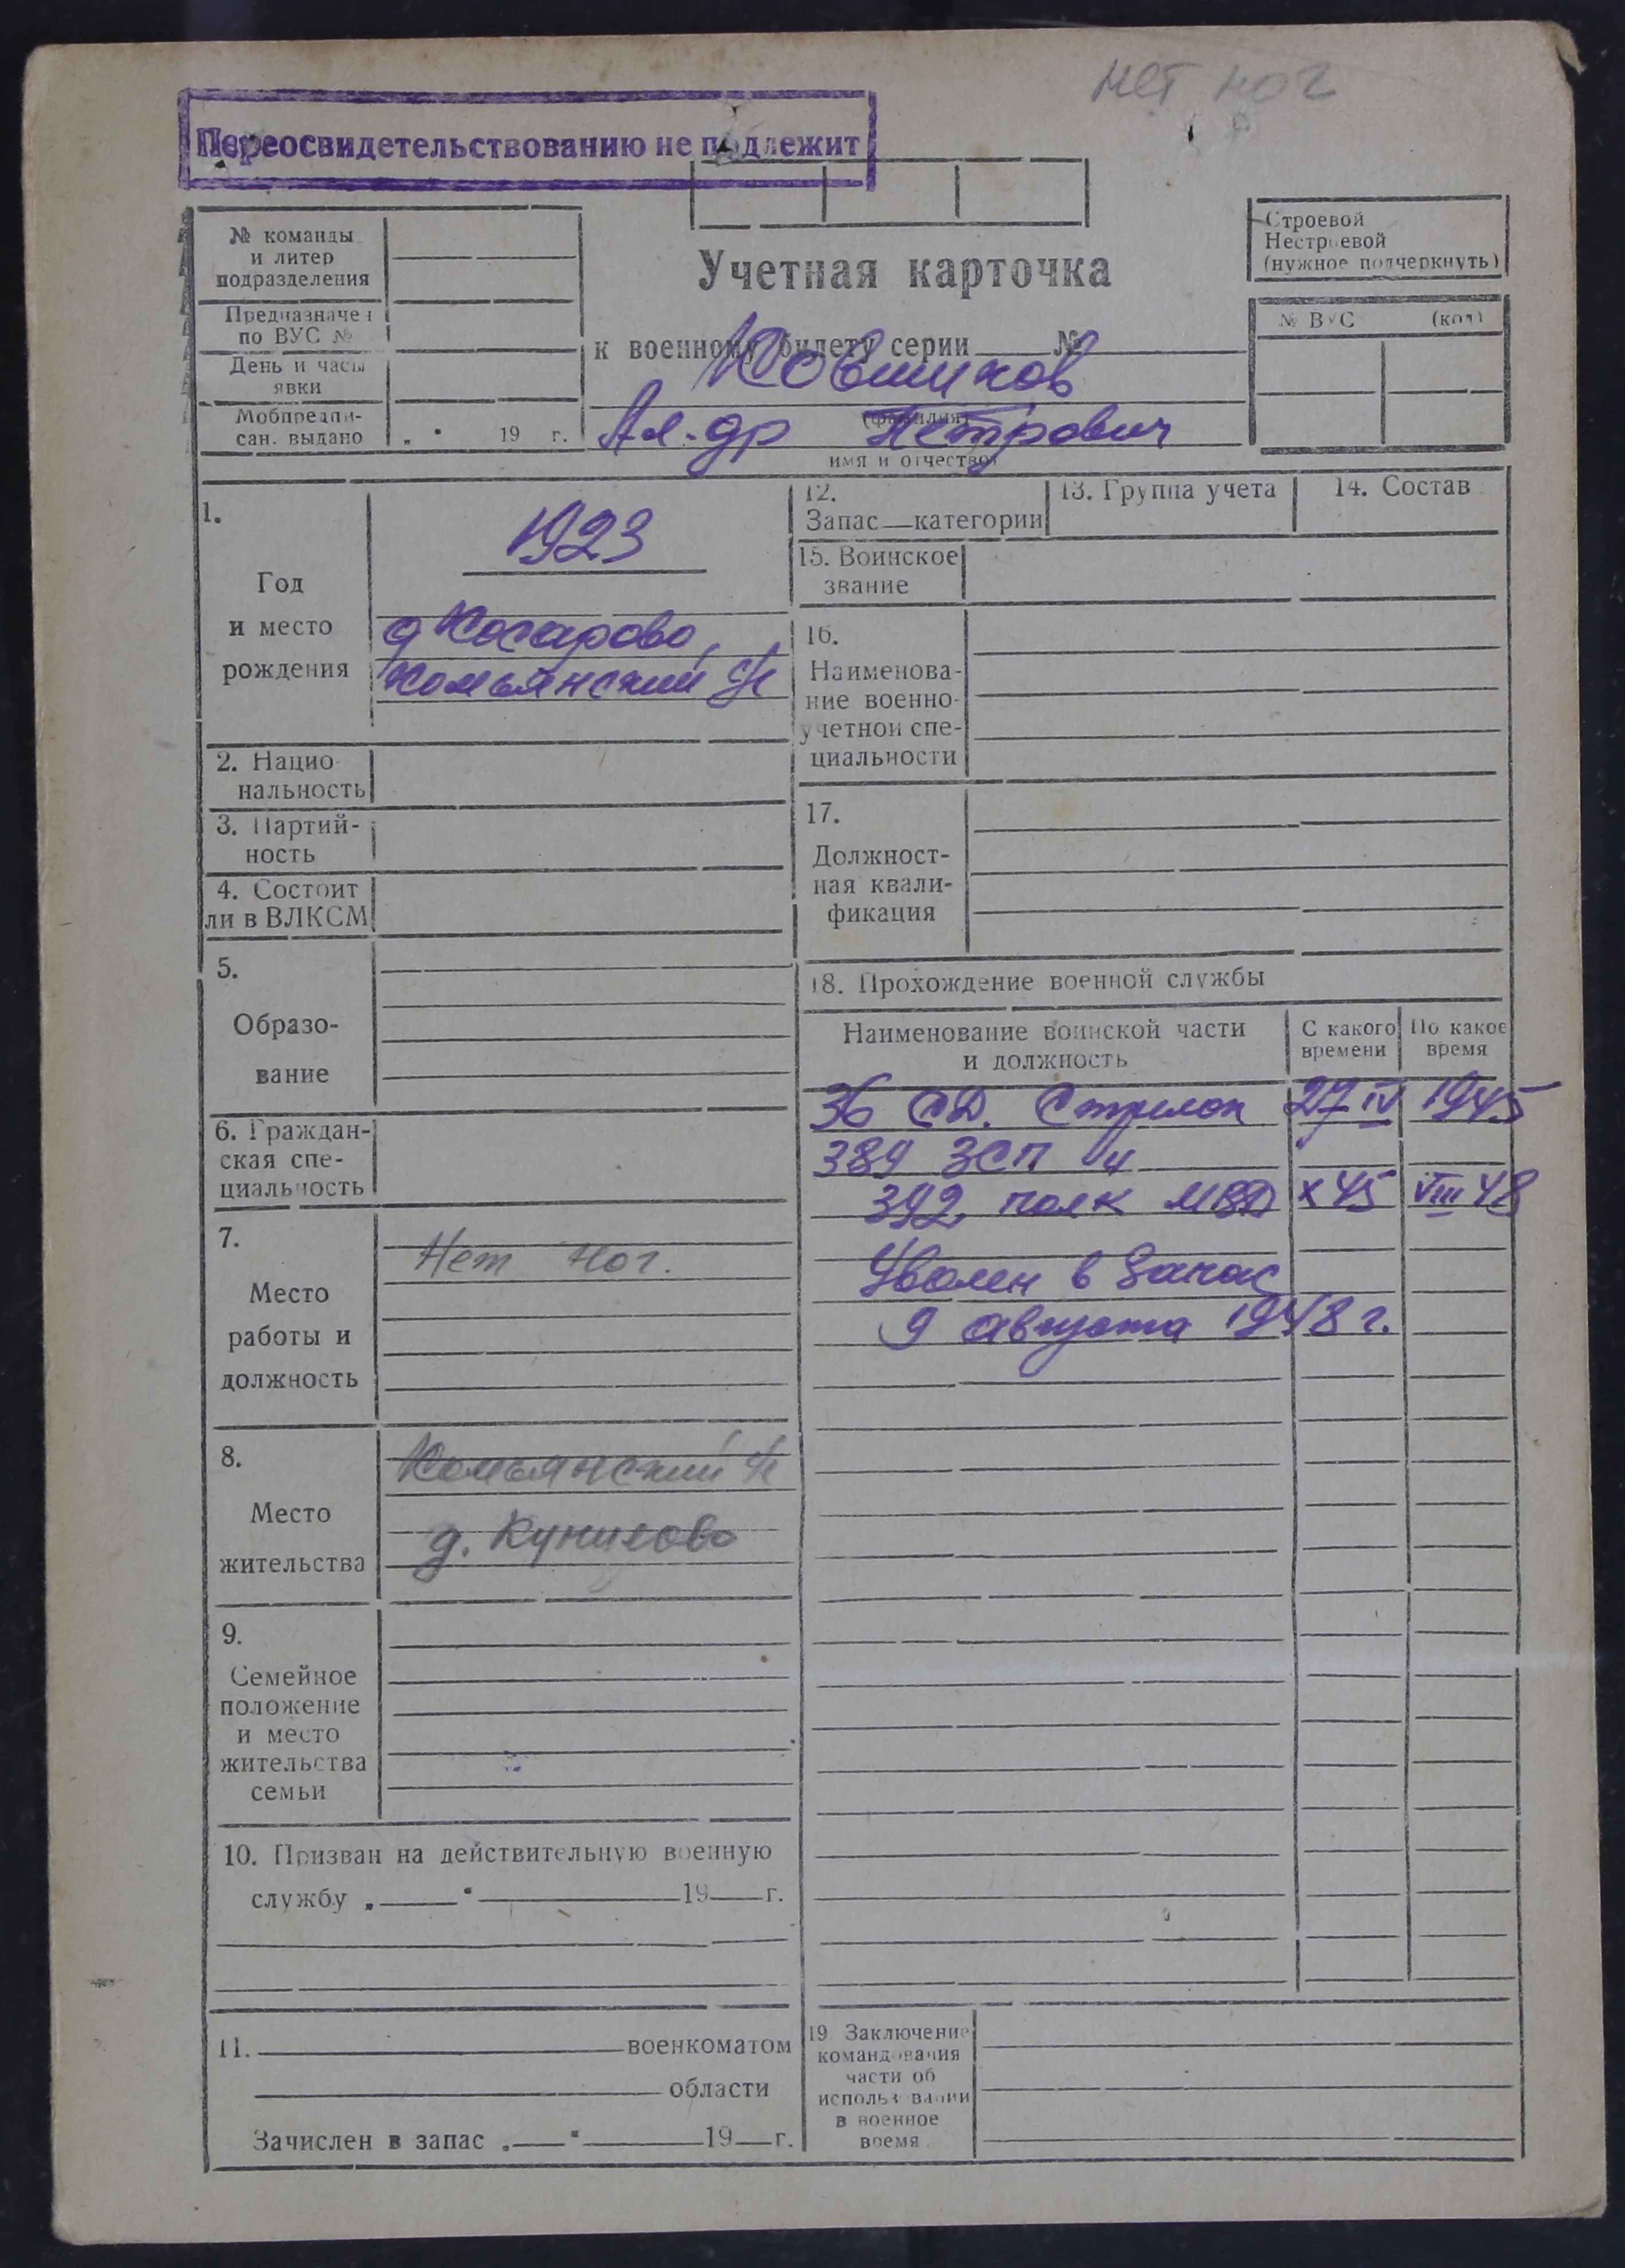 нет ног
Переосвидетельствованию не подлежит
№ команды
и литер
подразделения
Предназначен
по ВУС №
День и часы
явки
Мобпредпи-
сан. выдано „ “ 19 г.
Учетная карточка
к военному билету серии №
Ковшиков
(фамилия)
Ал-др Петрович
имя и отчество)
Строевой
Нестроевой
(нужное подчеркнуть)
№ ВУС (код)
1.
Год
и место
рождения
1923
д Косарово,
Комьянский
2. Нацио-
нальность
3. Партий-
ность
4. Состоит
ли в ВЛКСМ
5.
Образо-
вание
6. Граждан-
ская спе-
циальность
7.
Место
работы и
должность
Нет ног.
8.
Место
жительства
Комьянский
д.
9.
Семейное
положение
и место
жительства
семьи
10. Призван на действительную военную
службу „ “ 19 г.
11. военкоматом
области
Зачислен в запас „ “ 19 г.
12.
Запас категории
13. Группа учета
14. Состав
15. Воинское
звание
16.
Наименова-
ние военно-
учетной спе-
циальности
17.
Должност-
ная квали-
фикация
18. Прохождение военной службы
Наименование воинской части
и должность
С какого
времени
По какое
время
36 СД. Стрелок 27 IV 1945
389 ЗСП
392 полк МВД X 45 VIII 48
Уволен в запас
9 августа 1948 г.
19 Заключение
командования
части об
использовании
в военное
время